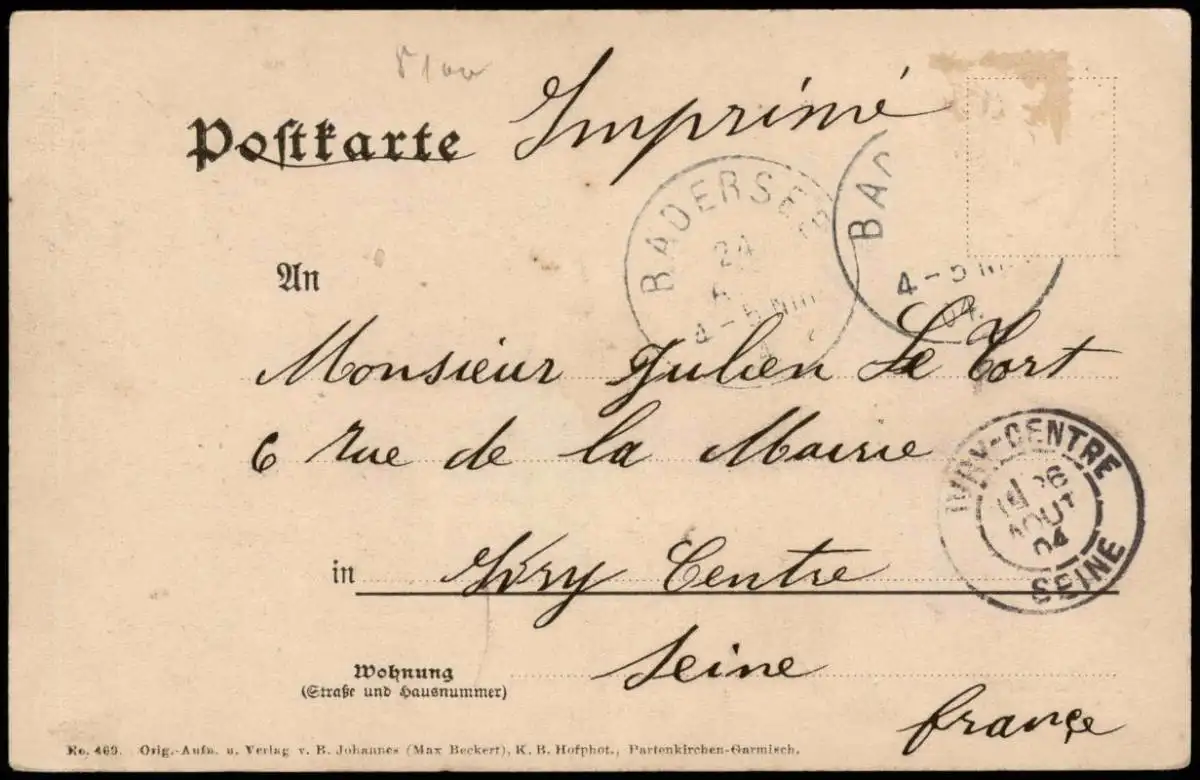 Postkarte Imprimé
BADERSEE
24
4-5 Nm
BAD
4-5 N
04.
An
Monsieur Julien Le Cort
6 rue de la Mairie
IVRY-CENTRE
26
AOUT
04
SEINE
in Ivry Centre
Wohnung Seine
(Straße und Hausnummer)
france
No. 469. Orig.-Aufn. u. Verlag v. B. Johannes (Max Beckert), K. B. Hofphot., Partenkirchen-Garmisch.